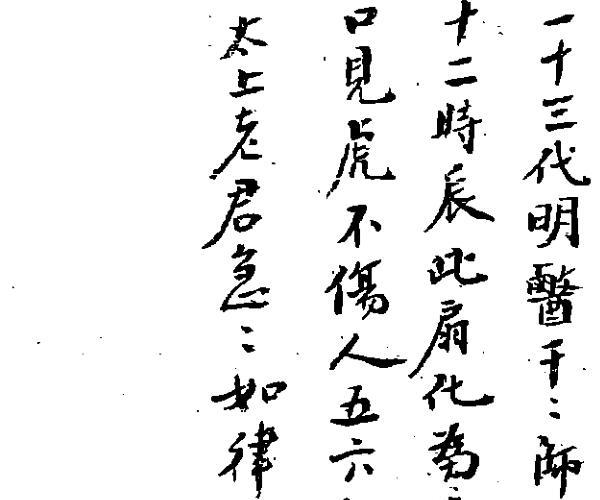 一十三代明醫千〻師
十二時辰此扇化為
口見虎不傷人五六
太上老君急〻如律